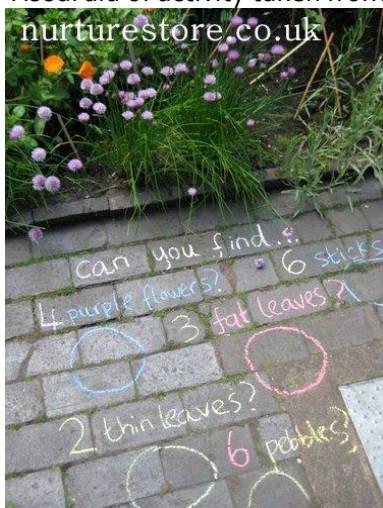 nurturestore.co.uk
can you find..?
6 sticks
4 purple flowers?
3 fat leaves?
2 thin leaves?
6 pebbles?